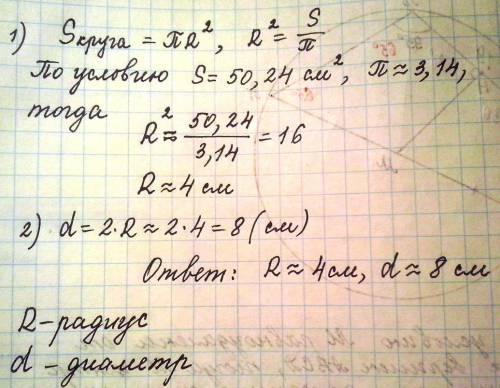 1) Sкруга = πR², R² = S/π
По условию S = 50,24 см², π ≈ 3,14,
тогда
R² ≈ 50,24/3,14 = 16
R ≈ 4 см
2) d = 2·R ≈ 2·4 = 8 (см)
Ответ: R ≈ 4см, d ≈ 8 см
R - радиус
d - диаметр